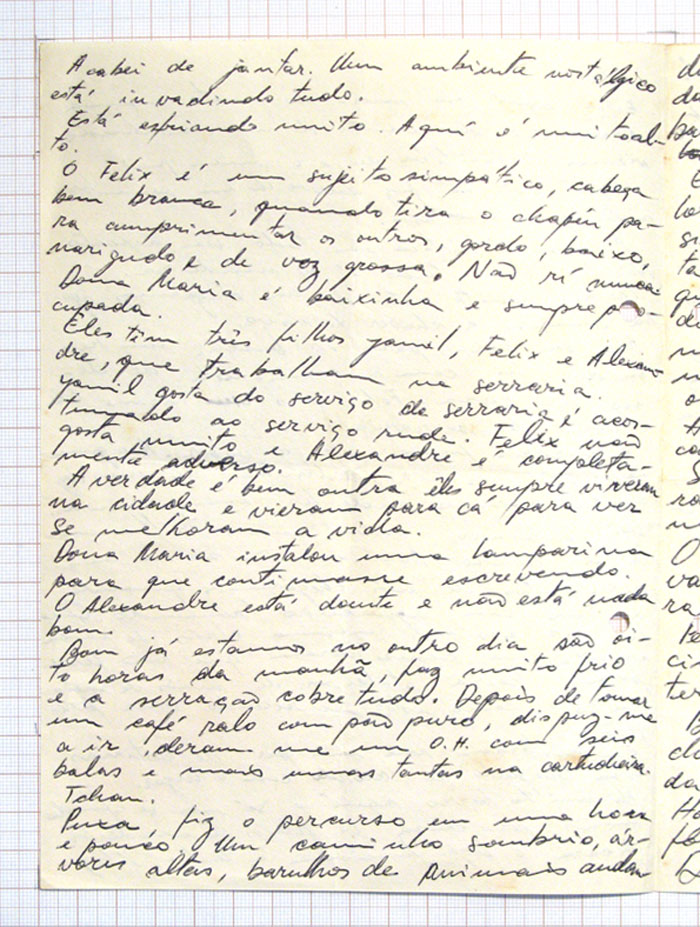 Acabei de jantar. Um ambiente nostálgico
está invadindo tudo.
Está esfriando muito. Aqui é muito al-
to.
O Felix é um sujeito simpático, cabeça
bem branca, quando tira o chapéu pa-
ra cumprimentar os outros, gordo, baixo,
narigudo e de voz grossa. Não rí nunca.
Dona Maria é baixinha e sempre preo-
cupada.
Êles têm três filhos yamil, Felix e Alexan-
dre, que trabalham na serraria.
yamil gosta do serviço de serraria é acos-
tumado ao serviço rude. Felix não
gosta muito e Alexandre é completa-
mente adverso.
A verdade é bem outra êles sempre viveram
na cidade e vieram para cá para ver
se melhoram a vida.
Dona Maria instalou uma lamparina
para que continuasse escrevendo.
O Alexandre está doente e não está nada
bom.
Bom já estamos no outro dia são oi-
to horas da manhã, faz muito frio
e a serração cobre tudo. Depois de tomar
um café ralo com pão puro, dispuz-me
a ir, deram-me um O.H. com seis
balas e mais umas tantas na cartucheira.
Tchau.
Puxa, fiz o percurso em uma hora
e pouco. Um caminho sombrio, ár-
vores altas, barulhos de animais andan